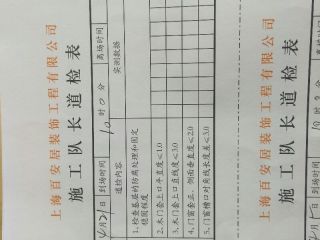 上海百安居装饰工程有限公司
施工队长道检表
月 日 到场时间 10 时 0 分 离场时间
道检内容 实测数据
1. 检查基层的防腐处理和固定
稳固程度
2. 木门套上口平直度≤1.0
3. 木门套上口直线度≤3.0
4. 门窗套正、侧面垂直度≤2.0
5. 门窗槽口对角线长度差≤3.0
上海百安居装饰工程有限公司
施工队长道检表
到场时间